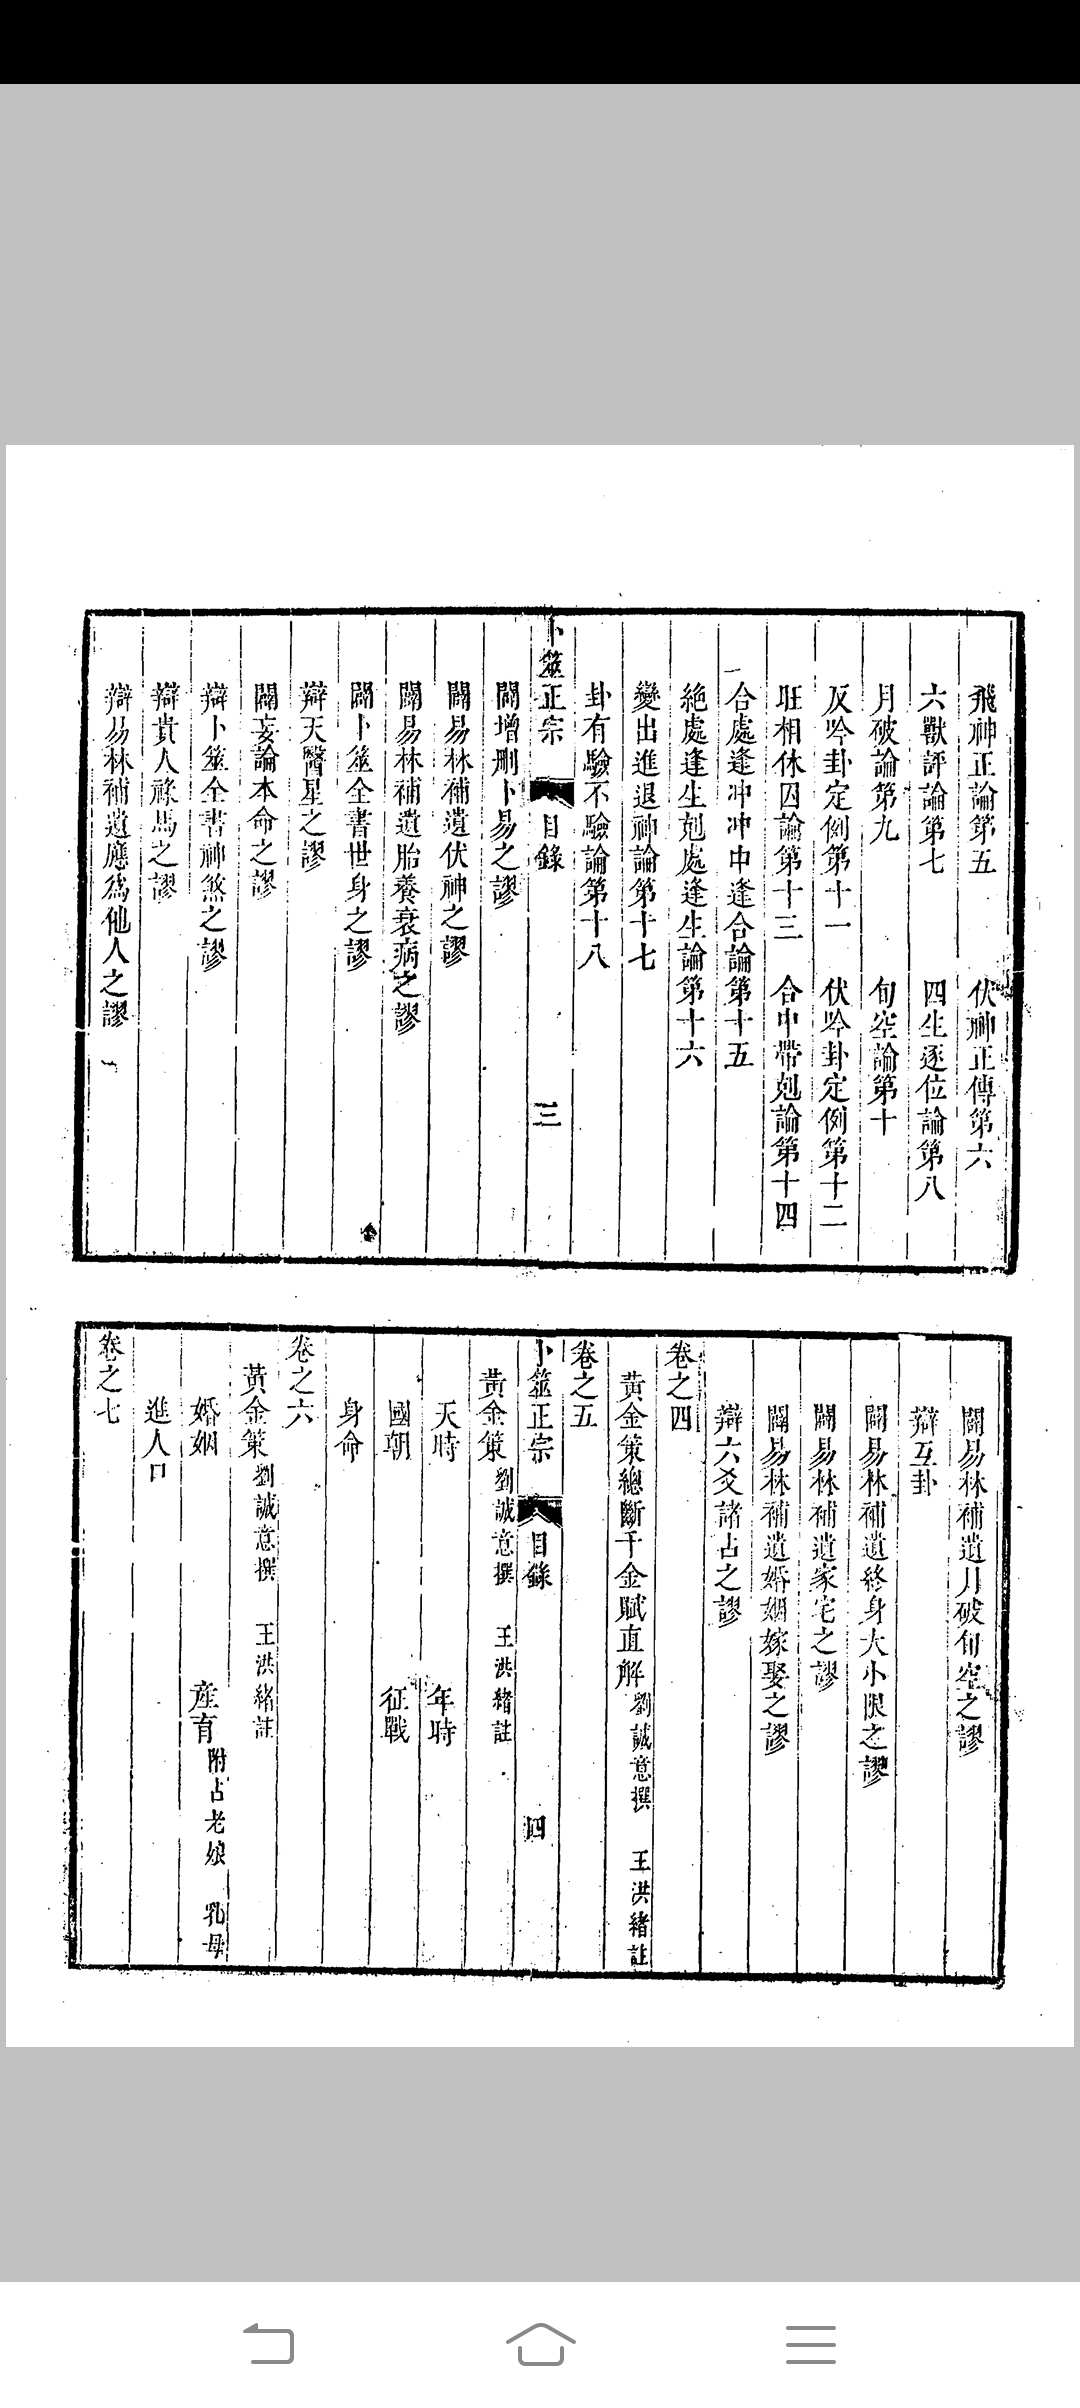 飛神正論第五　伏神正傳第六
六獸評論第七　四生逐位論第八
月破論第九　旬空論第十
反吟卦定例第十一　伏吟卦定例第十二
旺相休囚論第十三　合中帶尅論第十四
合處逢冲冲中逢合論第十五
絶處逢生尅處逢生論第十六
變出進退神論第十七
卦有驗不驗論第十八
卜筮正宗　目錄　三
闢增刪卜易之謬
闢易林補遺伏神之謬
闢易林補遺胎養衰病之謬
闢卜筮全書世身之謬
辯天醫星之謬
闢妄論本命之謬
辯卜筮全書神煞之謬
辯貴人祿馬之謬
辯易林補遺應爲他人之謬
闢易林補遺月破旬空之謬
辯互卦
闢易林補遺終身大小限之謬
闢易林補遺家宅之謬
闢易林補遺婚姻嫁娶之謬
辯六爻諸占之謬
卷之四
黃金策總斷千金賦直解　劉誠意撰　王洪緒註
卷之五
卜筮正宗　目錄　四
黃金策　劉誠意撰　王洪緒註
天時　年時
國朝　征戰
身命
卷之六
黃金策　劉誠意撰　王洪緒註
婚姻　產育　附占老娘　乳母
進人口
卷之七